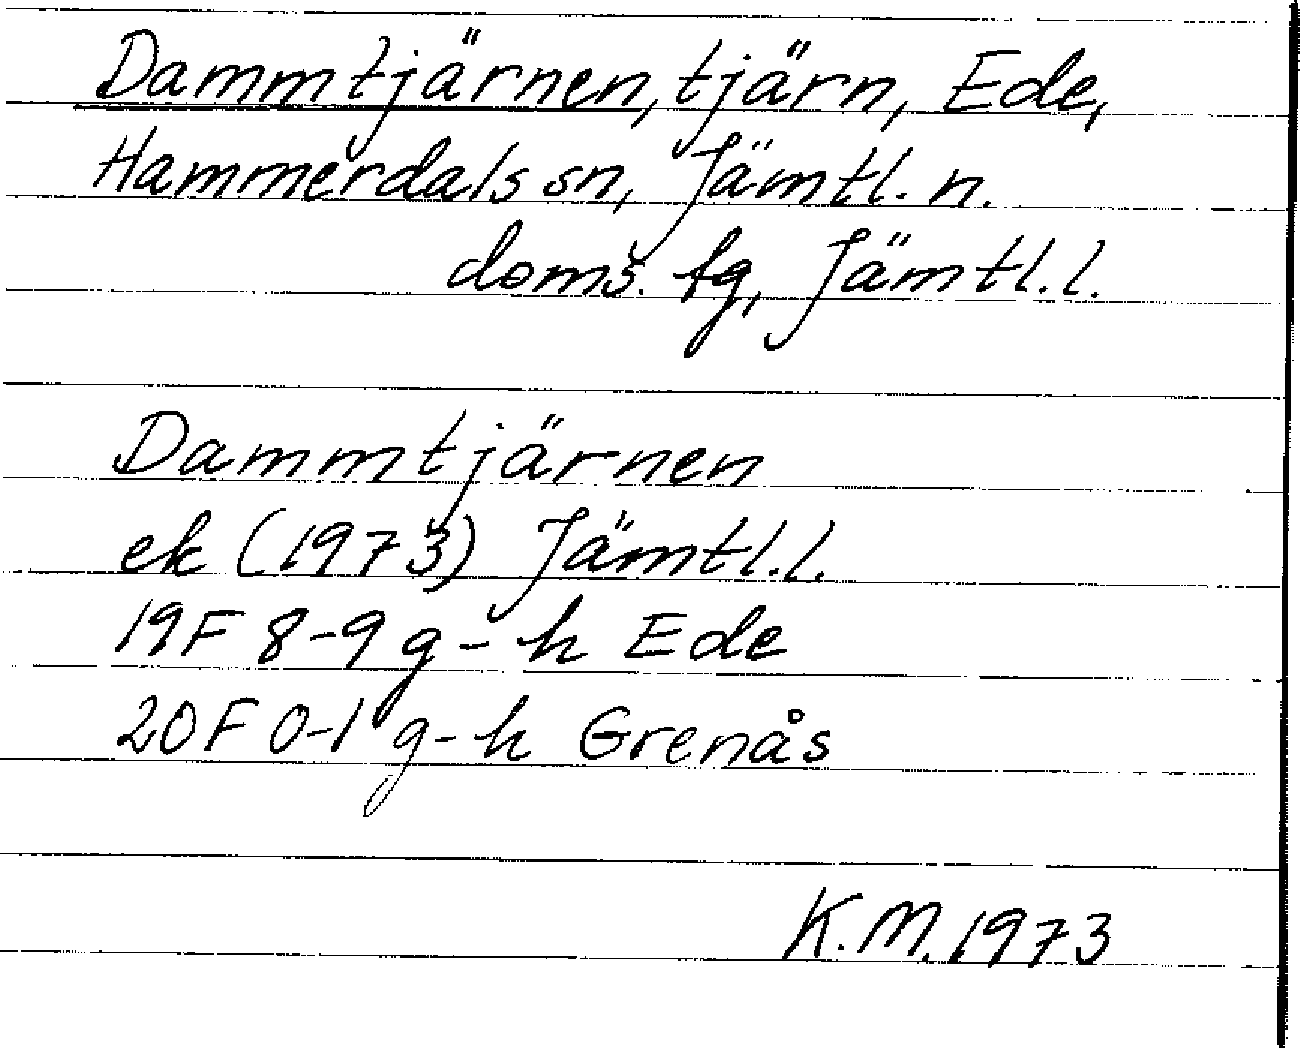 Dammtjärnen, tjärn, Ede,
Hammerdals sn, Jämtl. n.
doms. fg, Jämtl. l.
Dammtjärnen
ek (1973) Jämtl. l.
19F 8-9 g-h Ede
20F 0-1 g-h Grenås
K. M. 1973